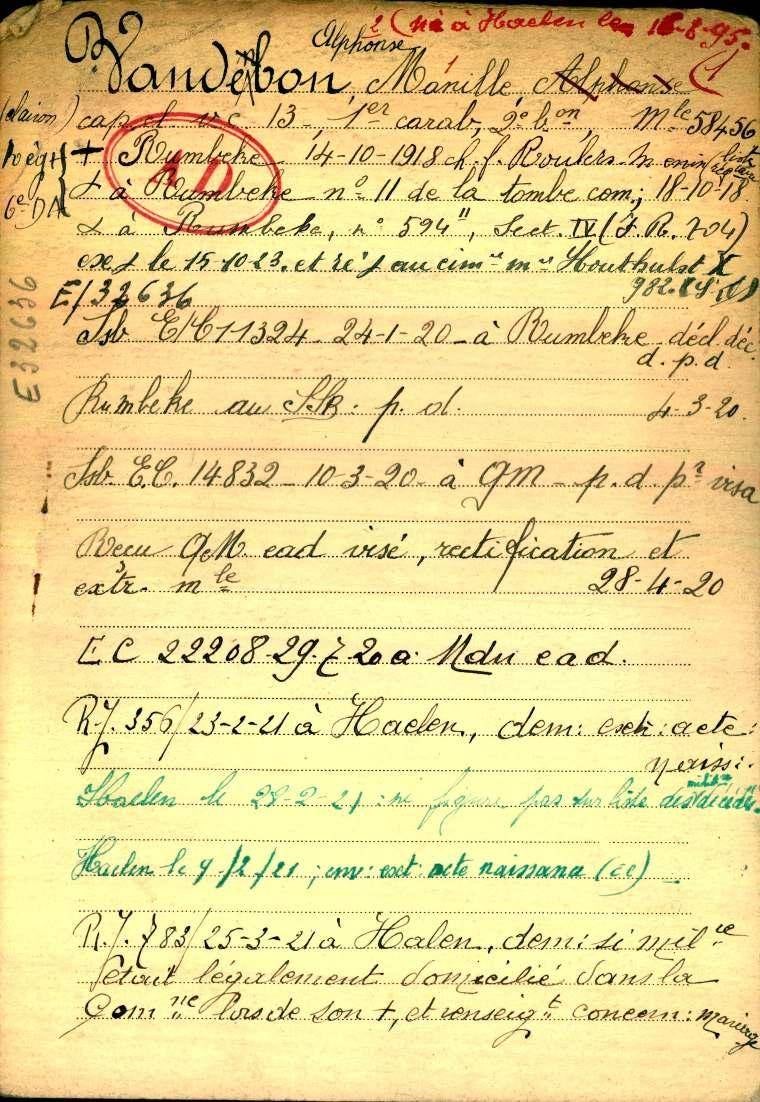 2 (né à Haelen le 16-8-95.
Alphonse
Vandebon Manille Alphonse
(clairon) cap et 13, 1er carab, 2e bon, Mle 58456
+ Rumbeke 14-10-1918 ch. f. Roulers-Menin
AD
à Rumbeke n° 11 de la tombe com; 18-10-18
6e DA
à Rumbeke, n° 594", Sect. IV (F.R. 704)
le 15-10-23. et au cimre mre Houthulst X
982.
E/32636
E32636
Ssb E/C 11324 24-1-20 à Rumbeke décl. déc.
d.p.d.
Rumbeke au SSB. p. d. 4-3-20.
Ssb. E.C. 14832 - 10-3-20 - à QM - p.d. pr visa
Reçu QM ead visé, rectification et
extr. mle 28-4-20
E C 22208-29.7-20 a Mdn ead.
R.J. 356/23-2-21 à Haelen, dem: extr: acte:
naiss:
Haelen le 28-2-21: ne figure pas sur liste des décédés.
milit
Haelen le 9/2/21; env: ext: acte naissance (cc)
R.J. 783/25-3-21 à Halen, dem: si milre
était légalement domicilié dans la
Comne lors de son +, et renseigt concern: mariage